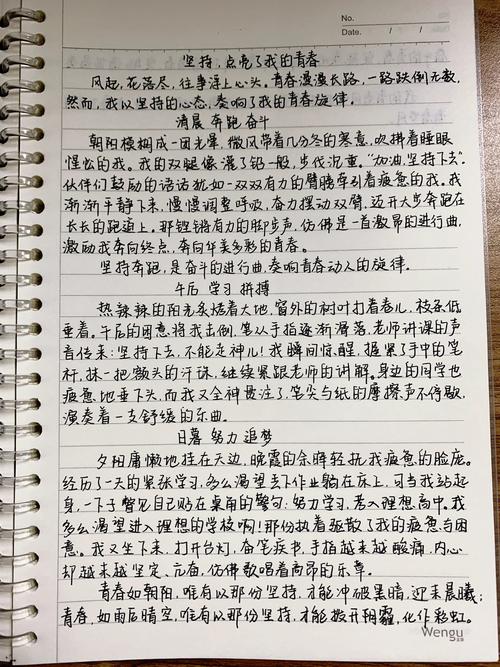 No.
Date. / /
坚持,点亮了我的青春
风起,花落尽,往事浮上心头。青春漫漫长路,一路跌倒无数,
然而,我以坚持的心态,奏响了我的青春旋律。
清晨 奔跑 奋斗
朝阳模糊成一团光晕,微风带着几分冬的寒意,吹拂着睡眼
惺忪的我。我的双腿像灌了铅一般,步伐沉重。“加油,坚持下去”。
伙伴们鼓励的话语犹如一双双有力的臂膀牵引着疲惫的我。我
渐渐平静下来,慢慢调整呼吸,奋力摆动双臂,迈开大步奔跑在
长长的跑道上。那铿锵有力的脚步声,仿佛是一首激昂的进行曲,
激励我奔向终点,奔向华美多彩的青春。
坚持奔跑,是奋斗的进行曲,奏响青春动人的旋律。
午后 学习 拼搏
热辣辣的阳光炙烤着大地,窗外的树叶打着卷儿,枝条低
垂着。午后的困意将我击倒,笔从手指逐渐滑落,老师讲课的声
音传来:坚持下去,不能走神儿!我瞬间惊醒,握紧了手中的笔
杆,抹一把额头的汗珠,继续紧跟老师的讲解。身边的同学也
疲惫地垂下头,而我又全神贯注了,笔尖与纸的摩擦声不停歇,
演奏着一支舒缓的乐曲。
日暮 努力 追梦
夕阳慵懒地挂在天边,晚霞的余晖轻抚我疲惫的脸庞。
经历了一天的紧张学习,多么渴望丢下作业躺在床上,可当我站起
身,一下子瞥见自己贴在桌角的警句:努力学习,考入理想高中。我
多么渴望进入理想的学校啊!那份执着驱散了我的疲惫与困
意。我又坐下来,打开台灯,奋笔疾书,手指越来越酸痛,内心
却越来越坚定、亢奋,仿佛歌唱着高昂的乐章。
青春如朝阳,唯有以那份坚持,才能冲破黑暗,迎来晨曦;
青春,如雨后晴空,唯有以那份坚持,才能拨开阴霾,化作彩虹。
Wengu